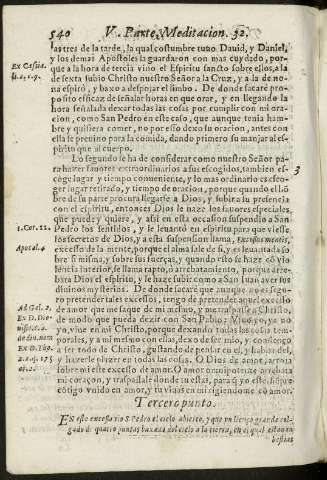 540 V. Parte, Meditacion. 32.
las tres de la tarde, la qual costumbre tuuo Dauid, y Daniel,
y los demas Apostoles la guardaron con mas cuydado, por-
que a la hora de tercia vino el Espiritu santo sobre ellos, a la
de sexta subio Christo nuestro Señor a la Cruz, y a la de no-
na espirò, y baxo a despojar el limbo. De donde sacarè pro-
posito eficaz de señalar horas en que orar, y en llegando la
hora señalada dexar todas las cosas por cumplir con mi ora-
cion, como San Pedro en este caso, que aunque tenia ham-
bre y quisiera comer, no por esso dexò su oracion, antes con
ella se preuino para la comida, dando primero su manjar al es-
piritu que al cuerpo.
Lo segundo se ha de considerar como nuestro Señor pa-
ra hazer fauores extraordinarios a sus escogidos, tambien es-
coge lugar y tiempo conueniente, y lo mas ordinario es esco-
ger lugar retirado, y tiempo de oracion, porque quando el hõ-
bre de su parte procura llegarse a Dios, y subir a su presencia
con el espiritu, entonces Dios le haze los fauores especiales,
que puede y quiere, y assi en esta occasion suspendio a San
Pedro los sentidos, y le leuantò en espiritu para que viesse
los secretos de Dios, y a esta suspension llama,
excesso de la mente, porque el alma sale de si, y es leuantada so-
bre si misma, y sobre sus fuerças, y quando esto se haze cõ vio-
lencia interior, se llama rapto, ò arrebatamiento, porque arre-
bata Dios el espiritu, y le haze subir como a San Iuan a ver sus
diuinos mysterios. De donde sacarè que aunque no es segu-
ro pretender tales excessos, tengo de pretender aquel excesso
de amor que me saque de mi mismo, y me traspasse a Christo,
de modo que pueda dezir con San Pablo: Viuo yo, ya no
yo, viue en mi Christo, porque dexando todas las cosas tem-
porales, y a mi mismo con ellas, dexo de ser mio, y comienço
a ser todo de Christo, gustando de pensar en el, y hablar del,
y hazerle plazer en todas las cosas. O Dios de amor, arroja
sobre mi este excesso de amor. O amor omnipotente arrebata
mi coraçon, y traspassale donde tu estas, para q̃ yo este siẽpre
cõtigo vnido en amor, y tu viuas en mi rigiendome cõ amor.
Tercero punto.
EN este excesso vio S. Pedro el cielo abierto, y que vn lienço grande col-
gado de quatro puntas baxaua del cielo a la tierra, en el qual estauan
bestias
Ex Cassia.
3
1. Cor. 12.
Apocal. 4
Ad Gal. 2.
Ex D. Dio-
de diu. nom
Ex D. Tho.